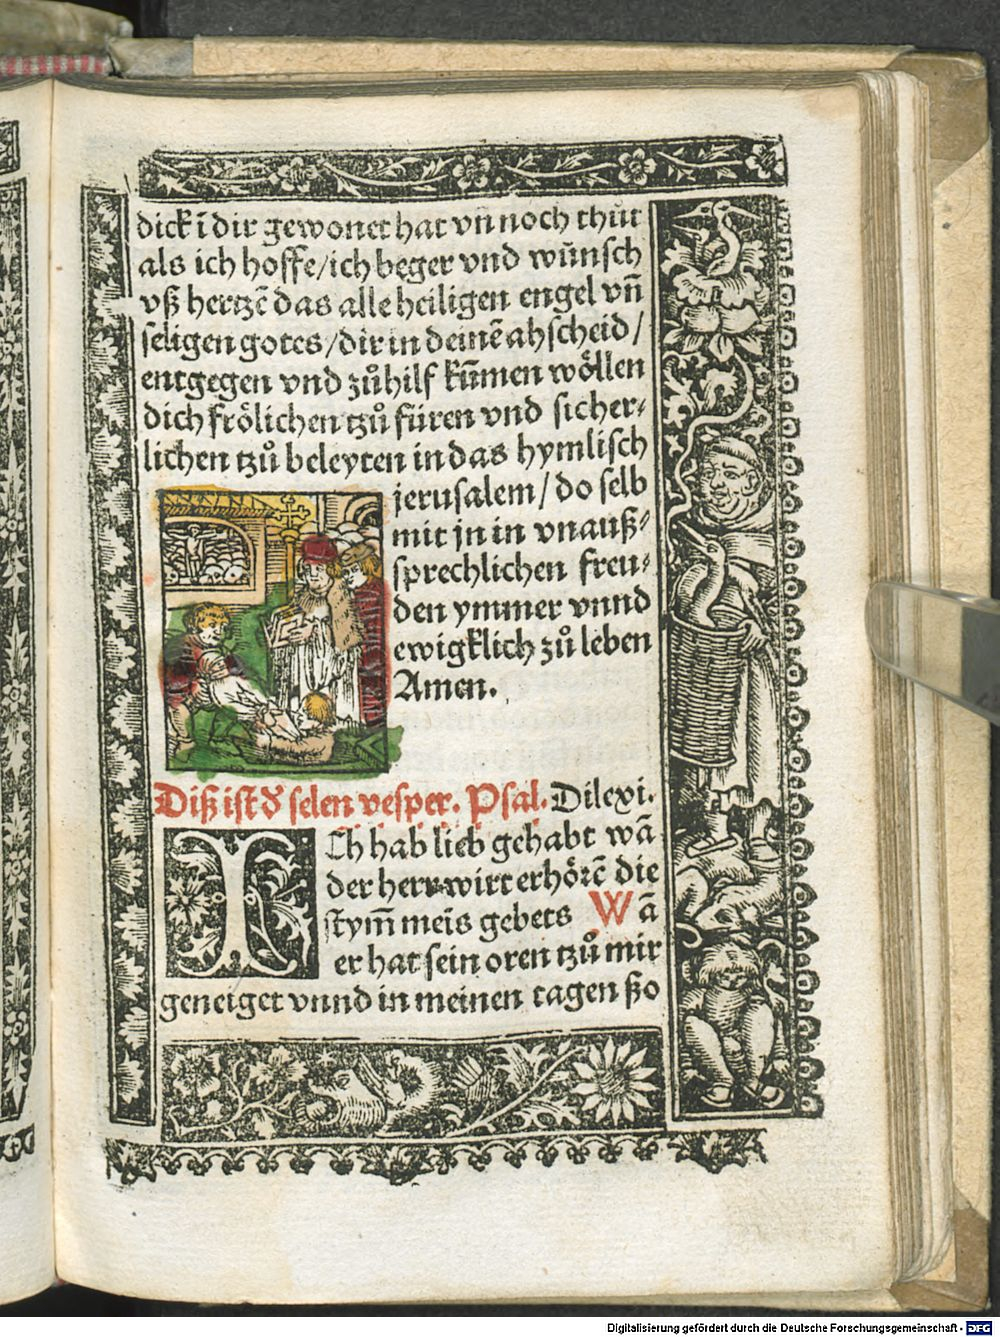 dick ī dir gewonet hat vn̄ noch thůt
als ich hoffe/ich beger vnd wünsch
vß hertzē das alle heiligen engel vn̄
seligen gotes/dir in deinē abscheid/
entgegen vnd zůhilf kūmen wöllen
dich frölichen tzů füren vnd sicher⸗
lichen tzů beleyten in das hymlisch
jerusalem/do selb
mit jn in vnauß⸗
sprechlichen freu⸗
den ymmer vnnd
ewigklich zů leben
Amen.
Diß ist d̕ selen vesper. Psal. Dilexi.
ICh hab lieb gehabt wā
der herr wirt erhörē die
stym̄ meīs gebets Wā
er hat sein oren tzů mir
geneiget vnnd in meinen tagen ßo
Digitalisierung gefördert durch die Deutsche Forschungsgemeinschaft - DFG